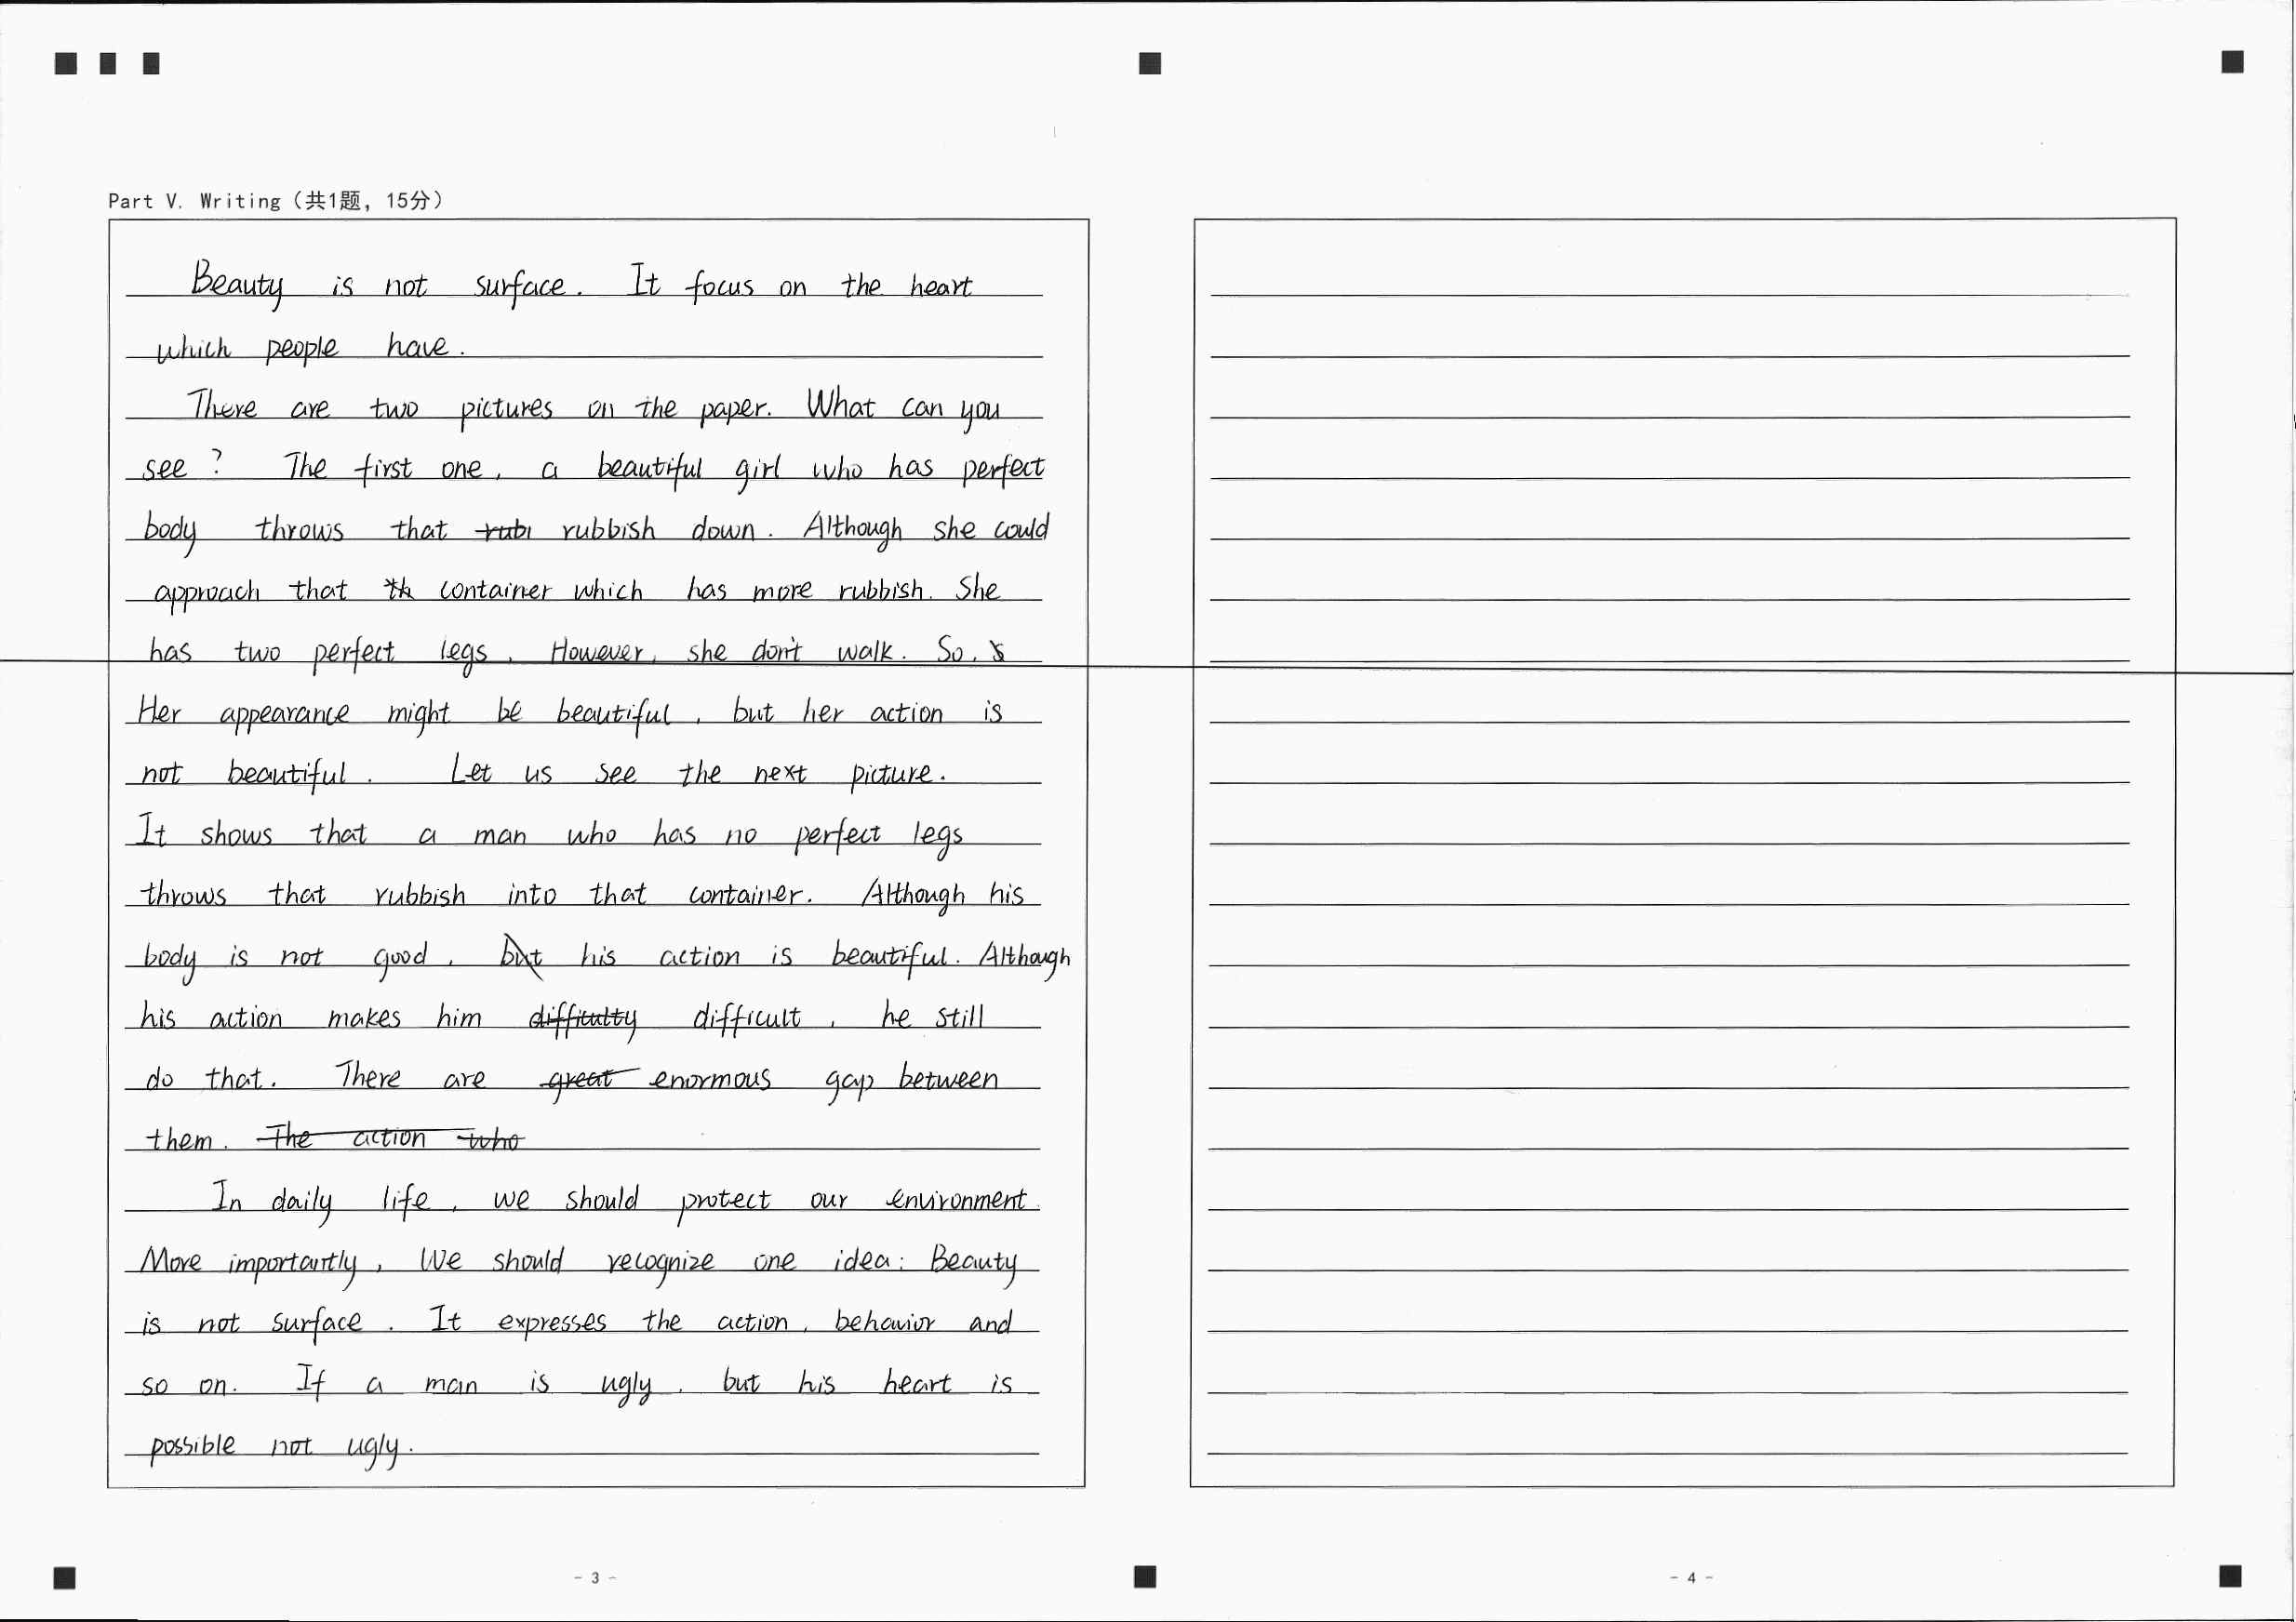 Part V. Writing（共1题，15分）
Beauty is not surface. It focus on the heart
which people have.
There are two pictures on the paper. What can you
see? The first one, a beautiful girl who has perfect
body throws that rubbish down. Although she could
approach that container which has more rubbish. She
has two perfect legs. However, she don't walk. So,
Her appearance might be beautiful, but her action is
not beautiful. Let us see the next picture.
It shows that a man who has no perfect legs
throws that rubbish into that container. Although his
body is not good, his action is beautiful. Although
his action makes him difficult, he still
do that. There are enormous gap between
them.
In daily life, we should protect our environment.
More importantly, We should recognize one idea: Beauty
is not surface. It expresses the action, behavior and
so on. If a man is ugly, but his heart is
possible not ugly.
- 3 -
- 4 -